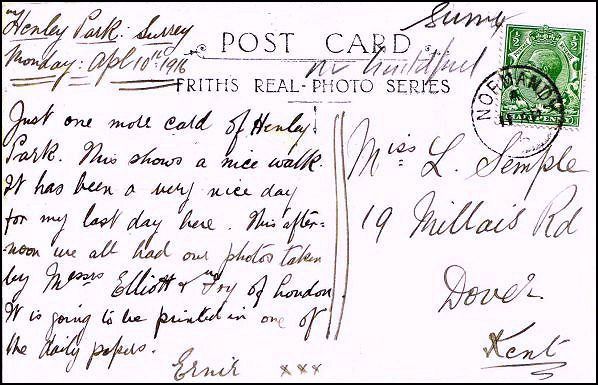 Henley Park: Surrey
Monday: Apl 10th 1916
Surrey
nr Guildford
POST CARD
FRITHS REAL-PHOTO SERIES
NORMANDY
Just one more card of Henley
Park. This shows a nice walk.
It has been a very nice day
for my last day here. This after-
noon we all had our photos taken
by Messrs Elliott & Fry of London.
It is going to be printed in one of
the daily papers.
Ernie xxx
Miss L. Semple
19 Millais Rd
Dover
Kent